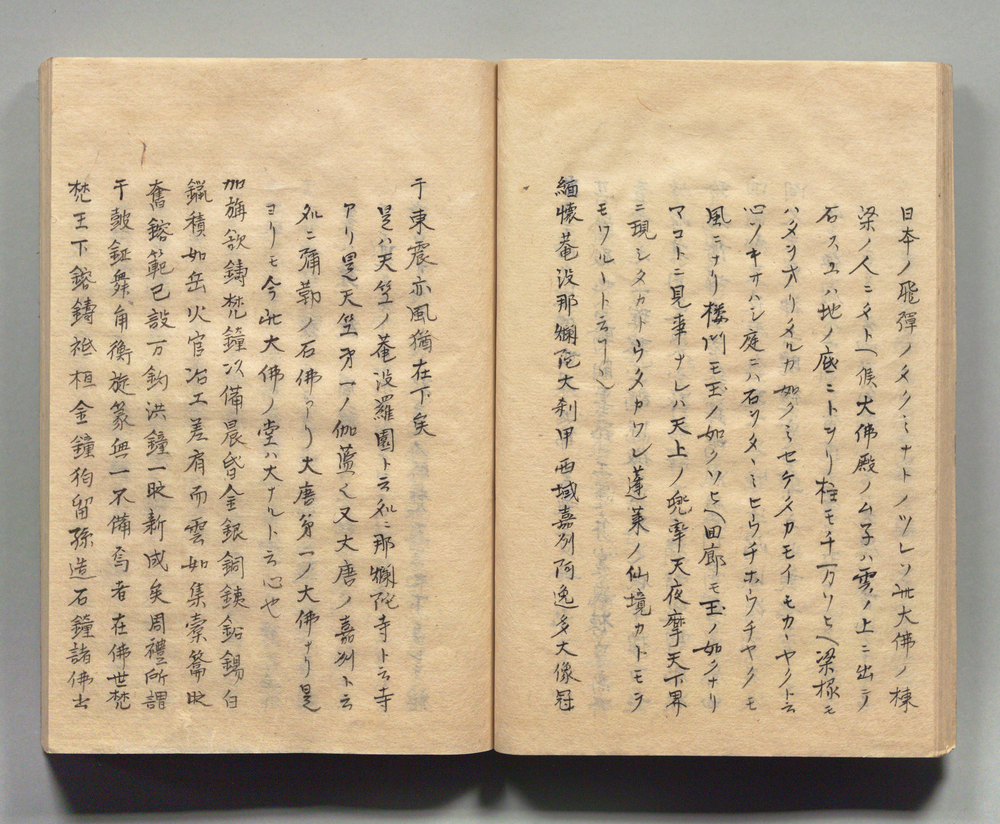 日本ノ飛彈ノタクミナトノツレソ此大佛ノ棟
梁ノ人ニイト〱候大佛殿ノムネハ雲ノ上ニ出テ
石スヱハ地ノ底ニトヲリ柱モ千万ソヒ〱梁椽モ
ハタヲオリタルカ如クミセケタカモイモカヽヤクト云
心ソキオハシ庭ニハ石ヲタヽミヒウチホウチヤクモ
風ニナリ楼門モ玉ノ如クソヒ〱回廊モ玉ノ如クナリ
マコトニ見事ナレハ天上ノ兜率天夜摩天下界
ニ現シタカトウタカワレ蓬莱ノ仙境カトモヲ
モワルヽト云
緬懷菴没那爛陀大刹甲西域嘉列阿逸多大像冠
于東震亦風猶在下矣
是ハ天竺ノ菴没羅園ト云処ニ那爛陀寺ト云寺
アリ是天竺第一ノ伽藍也又大唐ノ嘉州ト云
処ニ彌勒ノ石佛アリ大唐第一ノ大佛ナリ是
ヨリモ今此大佛ノ堂ハ大ナルト云心也
加旃欲鑄梵鐘以備晨昏金銀銅銕鉛錫白
鑞積如岳火官冶工差肩而雲如集橐籥㫚
奮鎔範已設万鈞洪鐘一㫚新成矣周禮所謂
于皷鉦舞角衡旋篆無一不備焉者在佛世梵
梵王下鎔鑄祗桓金鐘拘留孫造石鐘諸佛出